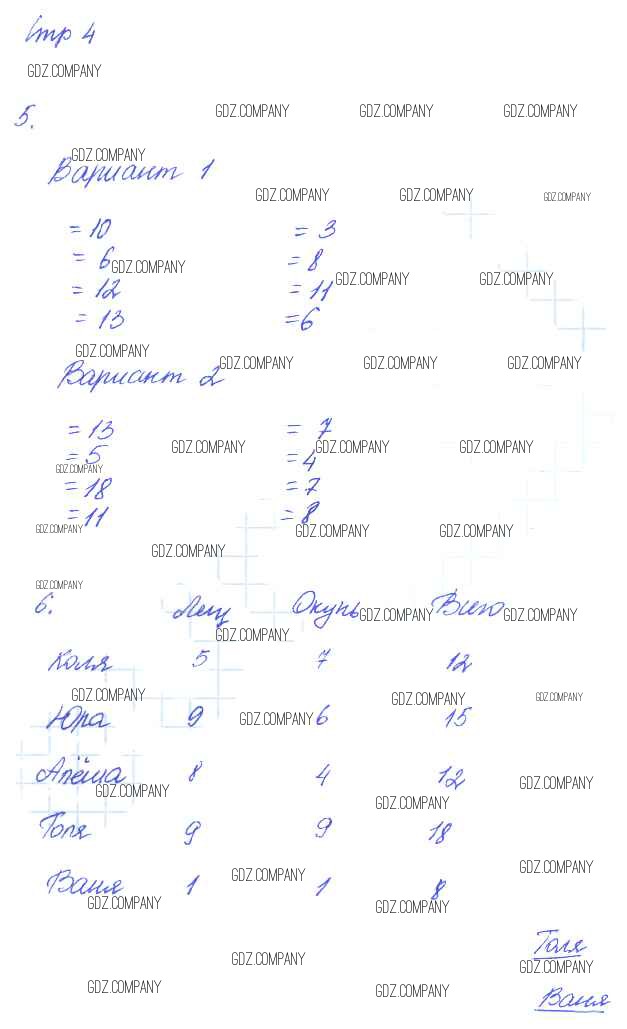 Стр 4
GDZ.COMPANY
5. GDZ.COMPANY GDZ.COMPANY GDZ.COMPANY
GDZ.COMPANY
Вариант 1
GDZ.COMPANY GDZ.COMPANY GDZ.COMPANY
= 10 = 3
= 6 GDZ.COMPANY = 8
GDZ.COMPANY GDZ.COMPANY
= 12 = 11
= 13 = 6
GDZ.COMPANY GDZ.COMPANY GDZ.COMPANY GDZ.COMPANY
Вариант 2
= 13 = 7
GDZ.COMPANY GDZ.COMPANY GDZ.COMPANY
= 5 = 4
GDZ.COMPANY
= 18 = 7
= 11 = 8
GDZ.COMPANY GDZ.COMPANY GDZ.COMPANY
GDZ.COMPANY
GDZ.COMPANY
6. Лещ Окунь Всего
GDZ.COMPANY GDZ.COMPANY
GDZ.COMPANY
Коля 5 7 12
GDZ.COMPANY GDZ.COMPANY GDZ.COMPANY
Юра 9 GDZ.COMPANY 6 15
Алёша 8 4 12
GDZ.COMPANY GDZ.COMPANY
GDZ.COMPANY
Толя 9 9 18
GDZ.COMPANY GDZ.COMPANY
Ваня 1 1 8
GDZ.COMPANY GDZ.COMPANY
Толя
GDZ.COMPANY GDZ.COMPANY
GDZ.COMPANY GDZ.COMPANY
Ваня